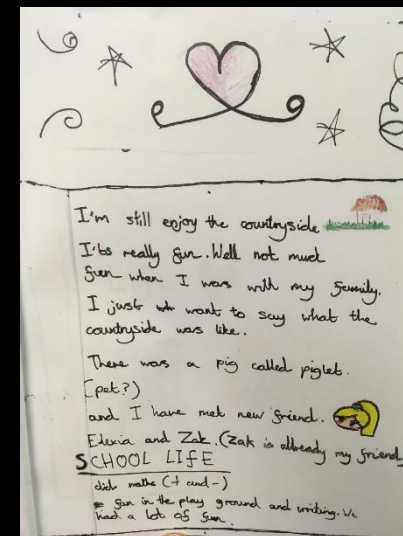 I'm still enjoy the countryside
I'ts really fun. Well not much
fun when I was with my family.
I just want to say what the
countryside was like.
There was a pig called piglet.
(pet?)
and I have met new friend.
Elexia and Zak. (Zak is allready my friend
SCHOOL LIFE
did maths (+ and -)
fun in the play ground and writing. We
had a lot of fun.